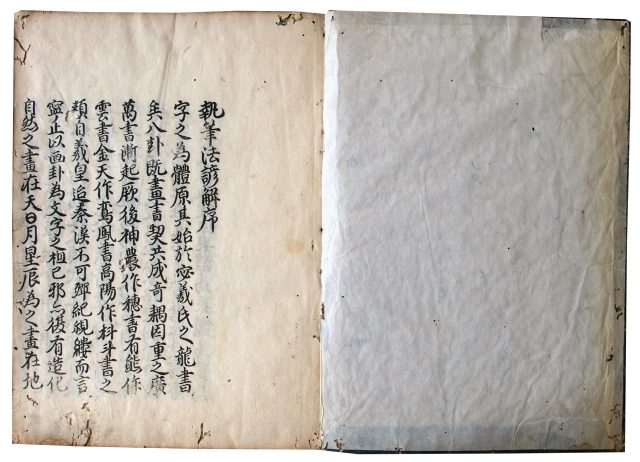 執筆法諺解序
字之為體原其始於宓羲氏之龍書
矣八卦既畫書契共成奇耦因重之廣
萬書漸起厥後神農作穗書有熊作
雲書金天作鸞鳳書高陽作科斗書之
類自羲皇迄秦漢不可殫紀覼縷而言
寧止以画卦為文字之祖已邪亦復有造化
自然之畫在天日月星辰為之畫在地